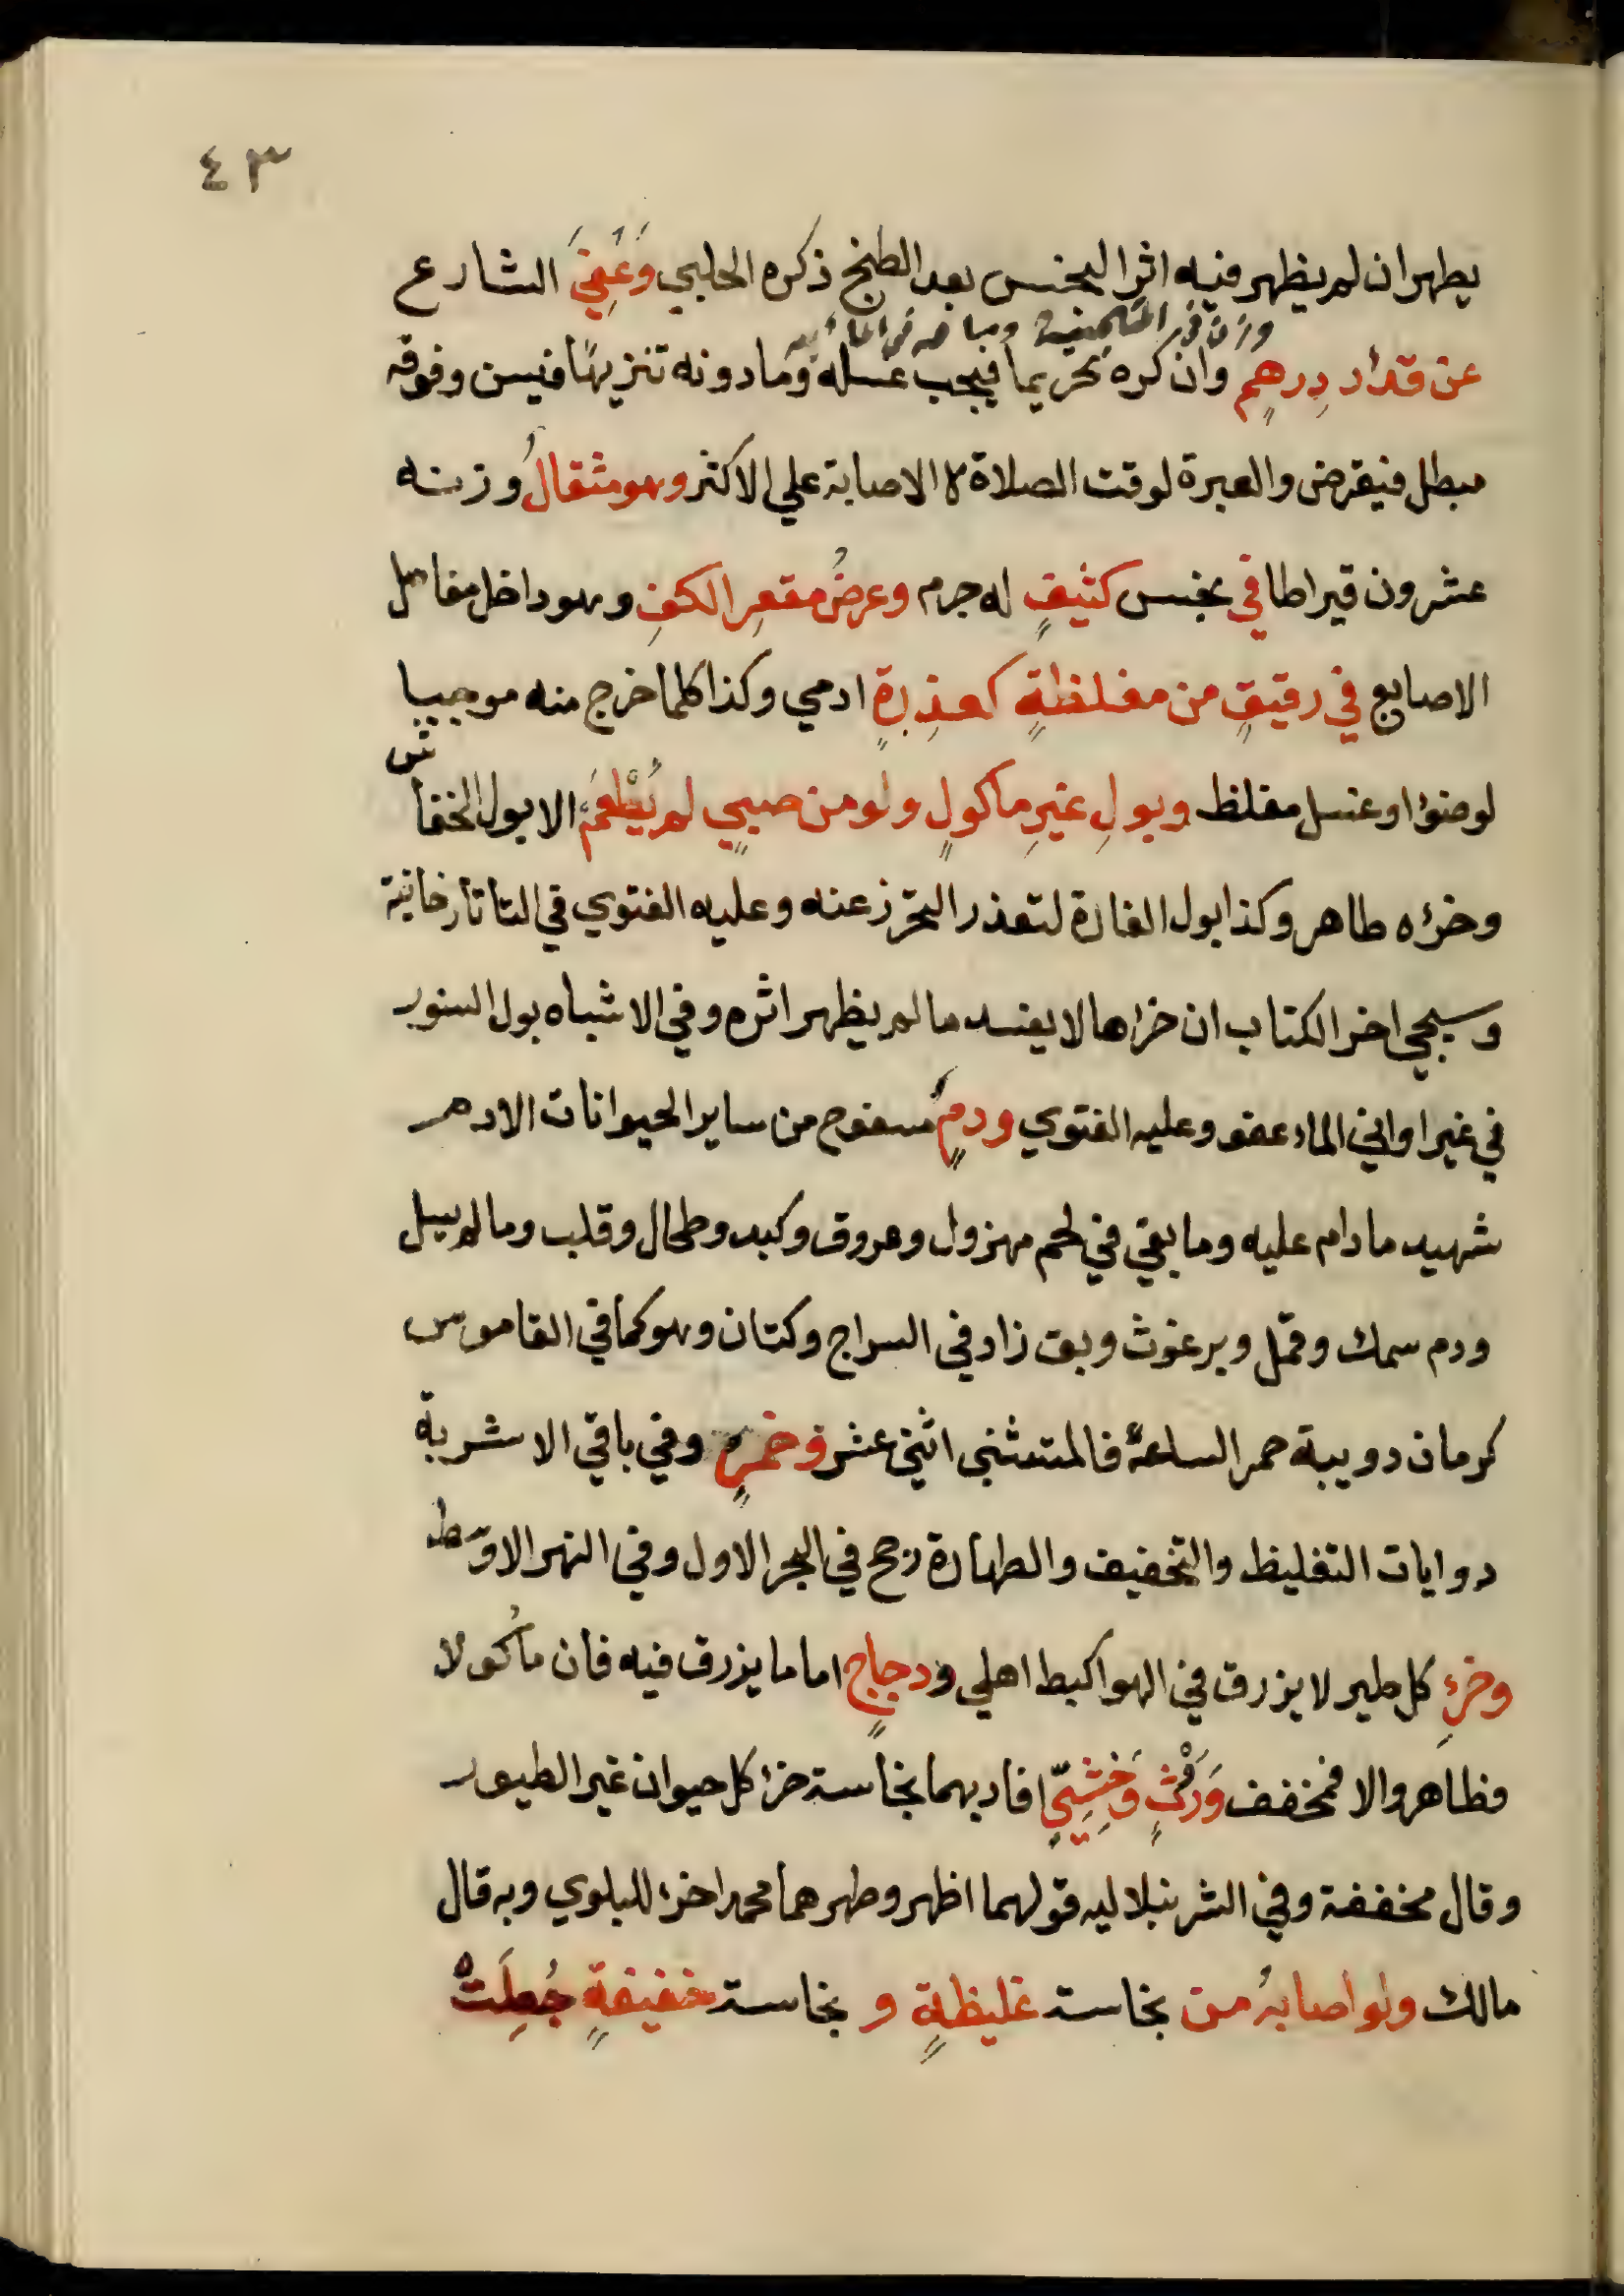 ٤٣
يطهر ان لم يظهر فيه اثر النجس بعد الطبخ ذكره الحلبي وَعُفِيَ الشارع
عن قدر درهمٍ وان كره تحريما فيجب غسله وما دونه تنزيهًا فيسن وفوقه
مبطل فيفرض والعبرة لوقت الصلاة لا الاصابة علي الاكثر وهو مثقالُ وزنه
عشرون قيراطا في نجس كثيفٍ له جرم وعرضُ مقعرِ الكفِ وهو داخل مفاصل
الاصابع في رقيقٍ من مغلظةٍ كعذِرةٍ ادمي وكذا كلما خرج منه موجبا
لوضؤ او غسل مغلظ وبولِ غيرِ ماكولٍ ولو من صبيٍ لم يُطْعَم الا بول الخفاش
وخرؤه طاهر وكذا بول الفارة لتعذر التحرز عنه وعليه الفتوي في التاتارخانية
وسيجي اخر الكتاب ان خراها لا يفسد ما لم يظهر اثره وفي الاشباه بول السنور
في غير اواني الماء عفو وعليه الفتوي ودمٍ مسفوح من ساير الحيوانات الا دم
شهيد ما دام عليه وما بقي في لحم مهزول وعروق وكبد وطحال وقلب وما لم يسل
ودم سمك وقمل وبرغوث وبق زاد في السراج وكتان وهو كما في القاموس
كرمان دويبة حمرا لساعة فالمستثنى اثني عشر وخمرٍ وفي باقي الاشربة
روايات التغليظ والتخفيف والطهارة رجح في البحر الاول وفي النهر الاوسط
وخرءِ كل طير لا يزرق في الهوا كبط اهلي ودجاجٍ اما ما يزرق فيه فان ماكولا
فطاهر والا فمخفف وَرَوْثٍ وَخِثِيٍّ افاد بهما نجاسة خرء كل حيوان غير الطيور
وقال مخففة وفي الشرنبلاليه قولهما اظهر وطهرهما محمد اخرا للبلوي وبه قال
مالك ولو اصابهُ من نجاسة غليظةٍ و نجاسة خفيفةٍ جُعِلَتْ